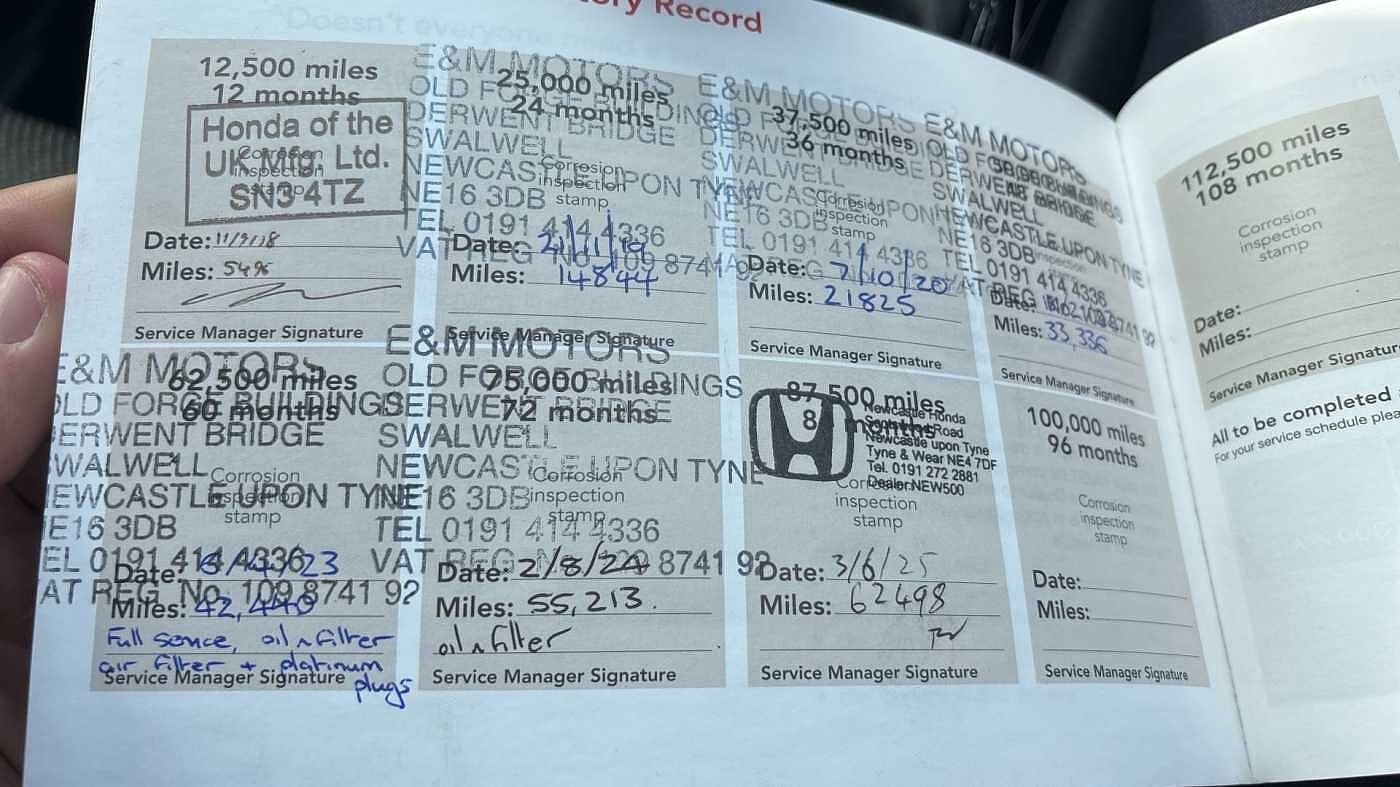 ory Record
12,500 miles
12 months
Honda of the
UK Mfg. Ltd.
SN3 4TZ
Corrosion
inspection
stamp
Date: 11/9/18
Miles: 5496
Service Manager Signature
E&M MOTORS
OLD FORGE BUILDINGS
DERWENT BRIDGE
SWALWELL
NEWCASTLE UPON TYNE
NE16 3DB
TEL 0191 414 4336
VAT REG No. 109 8741 92
25,000 miles
24 months
Corrosion
inspection
stamp
Date: 21/11/19
Miles: 14844
Service Manager Signature
E&M MOTORS
OLD FORGE BUILDINGS
DERWENT BRIDGE
SWALWELL
NEWCASTLE UPON TYNE
NE16 3DB
TEL 0191 414 4336
VAT REG
37,500 miles
36 months
Corrosion
inspection
stamp
Date: 7/10/20
Miles: 21825
Service Manager Signature
E&M MOTORS
OLD FORGE BUILDINGS
DERWENT BRIDGE
SWALWELL
NEWCASTLE UPON TYNE
NE16 3DB
TEL 0191 414 4336
VAT REG No. 109 8741 92
Date:
Miles: 33,336
Service Manager Signature
E&M MOTORS
OLD FORGE BUILDINGS
DERWENT BRIDGE
SWALWELL
NEWCASTLE UPON TYNE
NE16 3DB
TEL 0191 414 4336
VAT REG No. 109 8741 92
62,500 miles
60 months
Corrosion
inspection
stamp
Date: /23
Miles: 42,440
Full service, oil n filter
air filter + platinum
plugs
Service Manager Signature
E&M MOTORS
OLD FORGE BUILDINGS
DERWENT BRIDGE
SWALWELL
NEWCASTLE UPON TYNE
NE16 3DB
TEL 0191 414 4336
VAT REG No. 109 8741 92
75,000 miles
72 months
Corrosion
inspection
stamp
Date: 2/8/24
Miles: 55,213.
oil n filter
Service Manager Signature
87,500 miles
8 months
Newcastle Honda
Road
Newcastle upon Tyne
Tyne & Wear NE4 7DF
Tel. 0191 272 2881
Dealer NEW500
Corrosion
inspection
stamp
Date: 3/6/25
Miles: 62498
Service Manager Signature
100,000 miles
96 months
Corrosion
inspection
stamp
Date:
Miles:
Service Manager Signature
112,500 miles
108 months
Corrosion
inspection
stamp
Date:
Miles:
Service Manager Signatur
All to be completed
For your service schedule plea